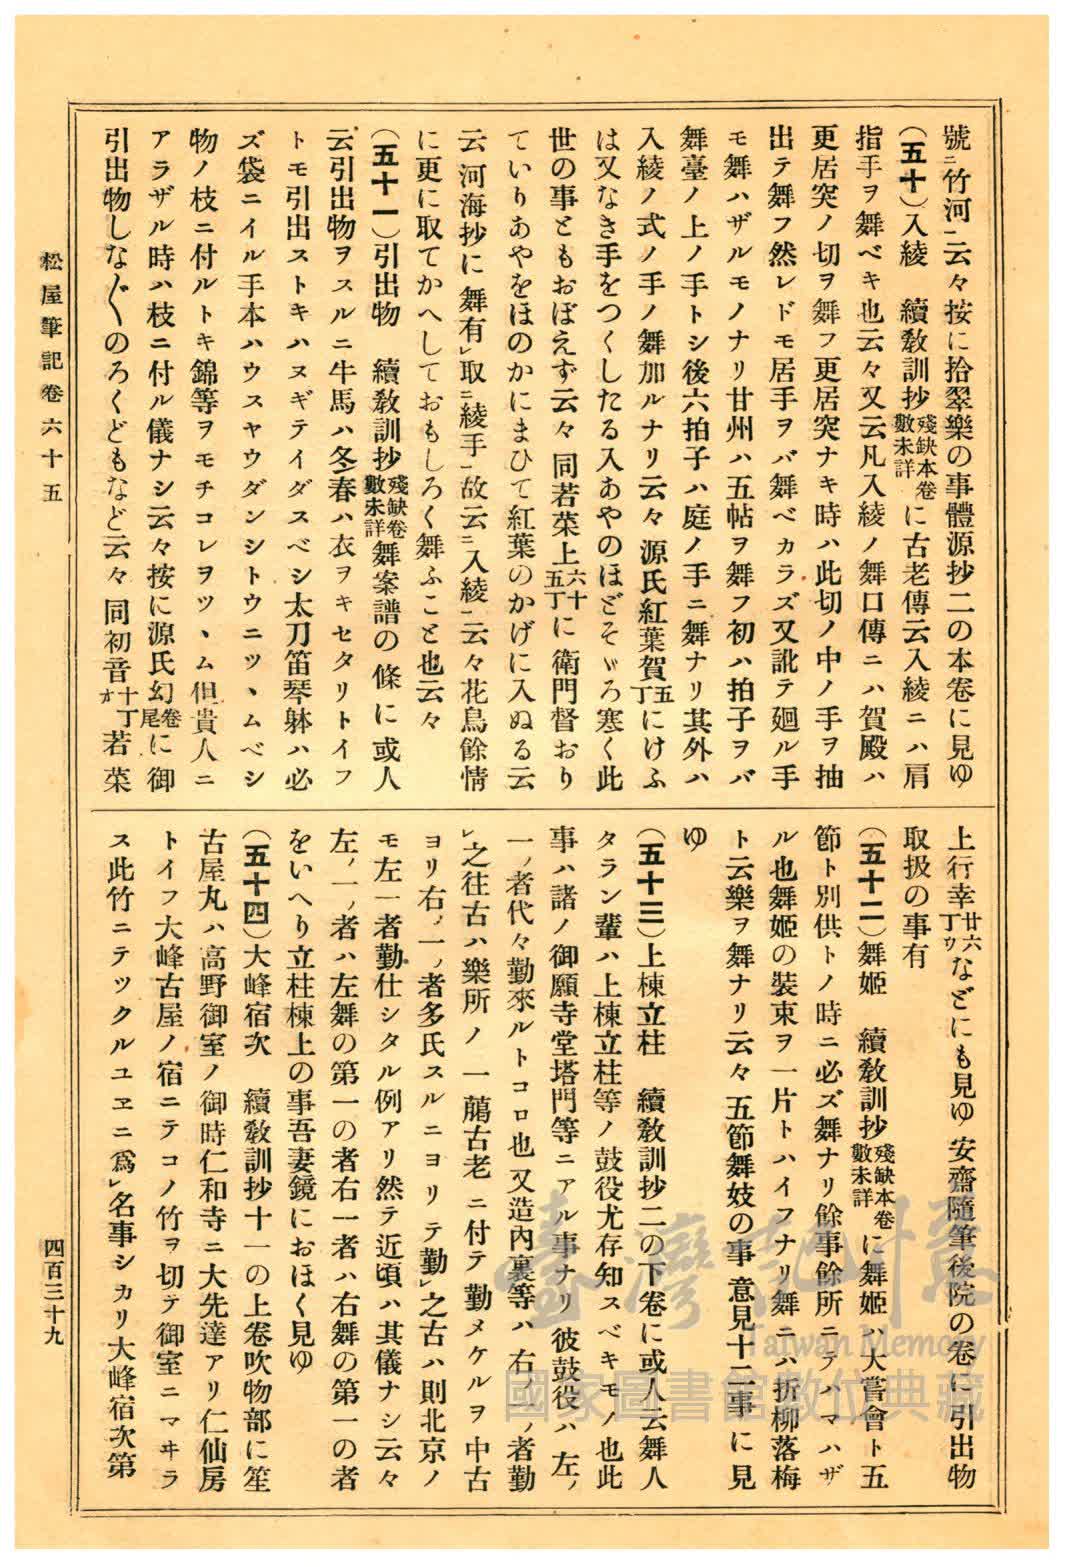 號ニ竹河ニ云々按に拾翠樂の事體源抄二の本卷に見ゆ
(五十)入綾　續敎訓抄殘缺本卷數未詳に古老傳云入綾ニハ肩
指手ヲ舞ベキ也云々又云凡入綾ノ舞口傳ニハ賀殿ハ
更居突ノ切ヲ舞フ更居突ナキ時ハ此切ノ中ノ手ヲ抽
出テ舞フ然レドモ居手ヲバ舞ベカラズ又訛テ廻ル手
モ舞ハザルモノナリ甘州ハ五帖ヲ舞フ初ハ拍子ヲバ
舞臺ノ上ノ手トシ後六拍子ハ庭ノ手ニ舞ナリ其外ハ
入綾ノ式ノ手ノ舞加ルナリ云々源氏紅葉賀五丁にけふ
は又なき手をつくしたる入あやのほどそゞろ寒く此
世の事ともおぼえず云々同若菜上六十五丁に衛門督おり
ていりあやをほのかにまひて紅葉のかげに入ぬる云
云河海抄に舞有レ取ニ綾手一故云ニ入綾一云々花鳥餘情
に更に取てかへしておもしろく舞ふこと也云々
(五十一)引出物　續敎訓抄殘缺卷數未詳舞案譜の條に或人
云引出物ヲスルニ牛馬ハ冬春ハ衣ヲキセタリトイフ
トモ引出ストキハヌギテイダスベシ太刀笛琴躰ハ必
ズ袋ニイル手本ハウスヤウダンシトウニツヽムベシ
物ノ枝ニ付ルトキ錦等ヲモチコレヲツヽム但貴人ニ
アラザル時ハ枝ニ付ル儀ナシ云々按に源氏幻卷尾に御
引出物しな〴〵のろくどもなど云々同初音十丁オ若菜
上行幸廿六丁ウなどにも見ゆ安齋隨筆後院の卷に引出物
取扱の事有
(五十二)舞姬　續敎訓抄殘缺本卷數未詳に舞姬ハ大嘗會ト五
節ト別供トノ時ニ必ズ舞ナリ餘事餘所ニテハマハザ
ル也舞姬の裝束ヲ一片トハイフナリ舞ニハ折柳落梅
ト云樂ヲ舞ナリ云々五節舞妓の事意見十二事に見
ゆ
(五十三)上棟立柱　續敎訓抄二の下卷に或人云舞人
タラン輩ハ上棟立柱等ノ鼓役尤存知スベキモノ也此
事ハ諸ノ御願寺堂塔門等ニアル事ナリ彼鼓役ハ左ノ
一ノ者代々勤來ルトコロ也又造內裏等ハ右ノ一ノ者勤
レ之往古ハ樂所ノ一﨟古老ニ付テ勤メケルヲ中古
ヨリ右ノ一ノ者多氏スルニヨリテ勤レ之古ハ則北京ノ
モ左一者勤仕シタル例アリ然テ近頃ハ其儀ナシ云々
左ノ一ノ者ハ左舞の第一の者右一者ハ右舞の第一の者
をいへり立柱棟上の事吾妻鏡におほく見ゆ
(五十四)大峰宿次　續敎訓抄十一の上卷吹物部に笙
古屋丸ハ高野御室ノ御時仁和寺ニ大先達アリ仁仙房
トイフ大峰古屋ノ宿ニテコノ竹ヲ切テ御室ニマヰラ
ス此竹ニテツクルユヱニ爲レ名事シカリ大峰宿次第
松屋筆記卷六十五
四百三十九
臺灣記憶
Taiwan Memory
國家圖書館數位典藏